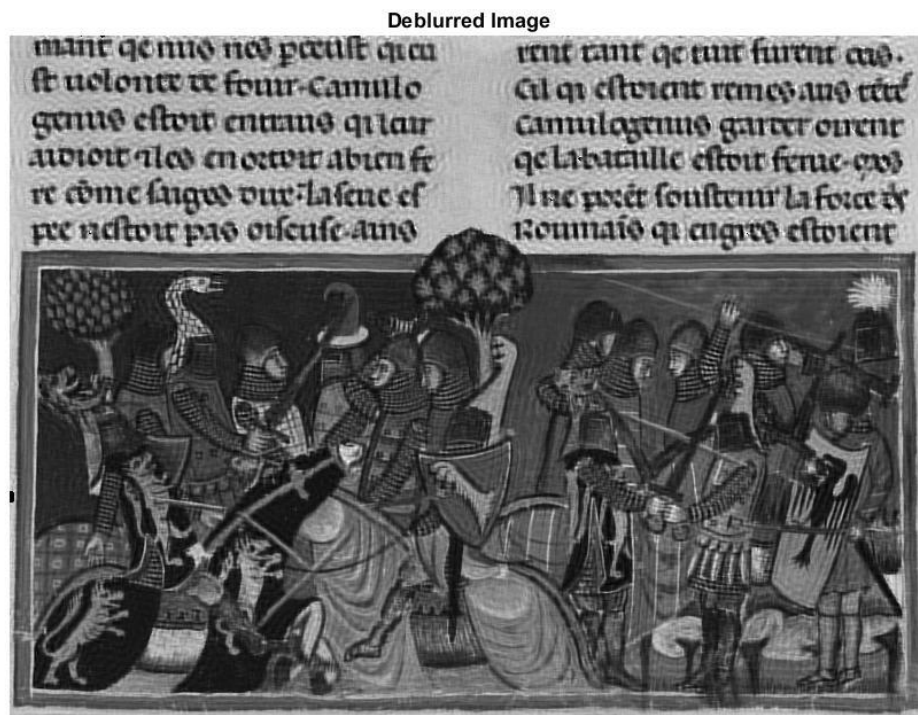 Deblurred Image
mant qe nus nes peeust qi eu
st uolonte de fouir. Camulo
genus estoit entraus qi leur
aidioit. 7 les enortoit a bien fe
re come saiges dux. la seue es
pee nestoit pas oiseuse. ains
rent tant qe tuit furent
Cil qi estoient remes aus
Camulogenus garder oirent
qe la bataille estoit ferue.
Il ne porent soustenir la force de
Roumais qi engres estoient